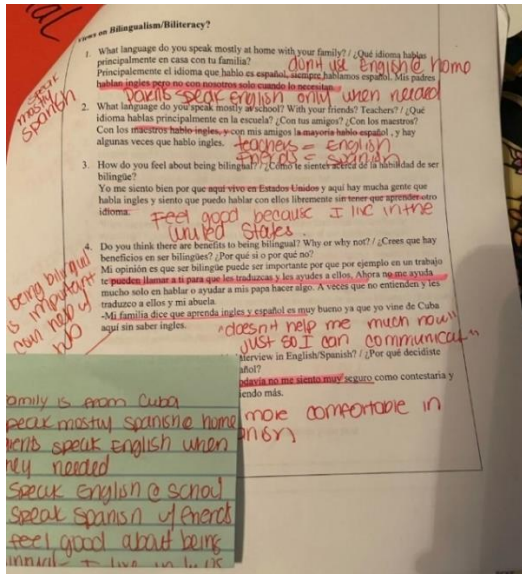 views on Bilingualism/Biliteracy?
1. What language do you speak mostly at home with your family? / ¿Qué idioma hablas
principalmente en casa con tu familia?
don't use English @ home
Principalemente el idioma que hablo es español, siempre hablamos español. Mis padres
hablan ingles pero no con nosotros solo cuando lo necesitan.
Parents speak English only when needed
speak
mostly
spanish
2. What language do you speak mostly at school? With your friends? Teachers? / ¿Qué
idioma hablas principalmente en la escuela? ¿Con tus amigos? ¿Con los maestros?
Con los maestros hablo ingles, y con mis amigos la mayoría hablo español , y hay
algunas veces que hablo ingles.
teachers = English
Friends = Spanish
3. How do you feel about being bilingual? / ¿Cómo te sientes acerca de la habilidad de ser
bilingüe?
Yo me siento bien por que aquí vivo en Estados Unidos y aquí hay mucha gente que
habla ingles y siento que puedo hablar con ellos libremente sin tener que aprender otro
idioma.
Feel good because I live in the
United States.
4. Do you think there are benefits to being bilingual? Why or why not? / ¿Crees que hay
beneficios en ser bilingües? ¿Por qué si o por qué no?
Mi opinión es que ser bilingüe puede ser importante por que por ejemplo en un trabajo
te pueden llamar a ti para que les traduzcas y les ayudes a ellos. Ahora no me ayuda
mucho solo en hablar o ayudar a mis papa hacer algo. A veces que no entienden y les
traduzco a ellos y mi abuela.
-Mi familia dice que aprenda ingles y español es muy bueno ya que yo vine de Cuba
aquí sin saber ingles.
being bilingual
is important
can help w/
job
"doesn't help me much now"
just so I can communicate"
interview in English/Spanish? / ¿Por qué decidiste
añol?
odavia no me siento muy seguro como contestaria y
iendo más.
more comfortable in
family is from Cuba
speak mostly spanish @ home
speak English when
they needed
speak English @ school
speak spanish w/ friends
feel good about being